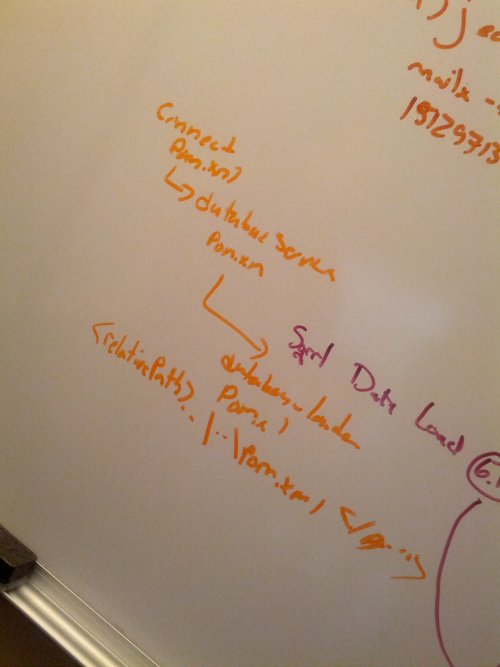 mailx -
Connect
Pom.xml
database Server
Pom.xm
Sqrrl Data Load
database-loader
Pom.x
<relativePath>../..\Pom.xml </